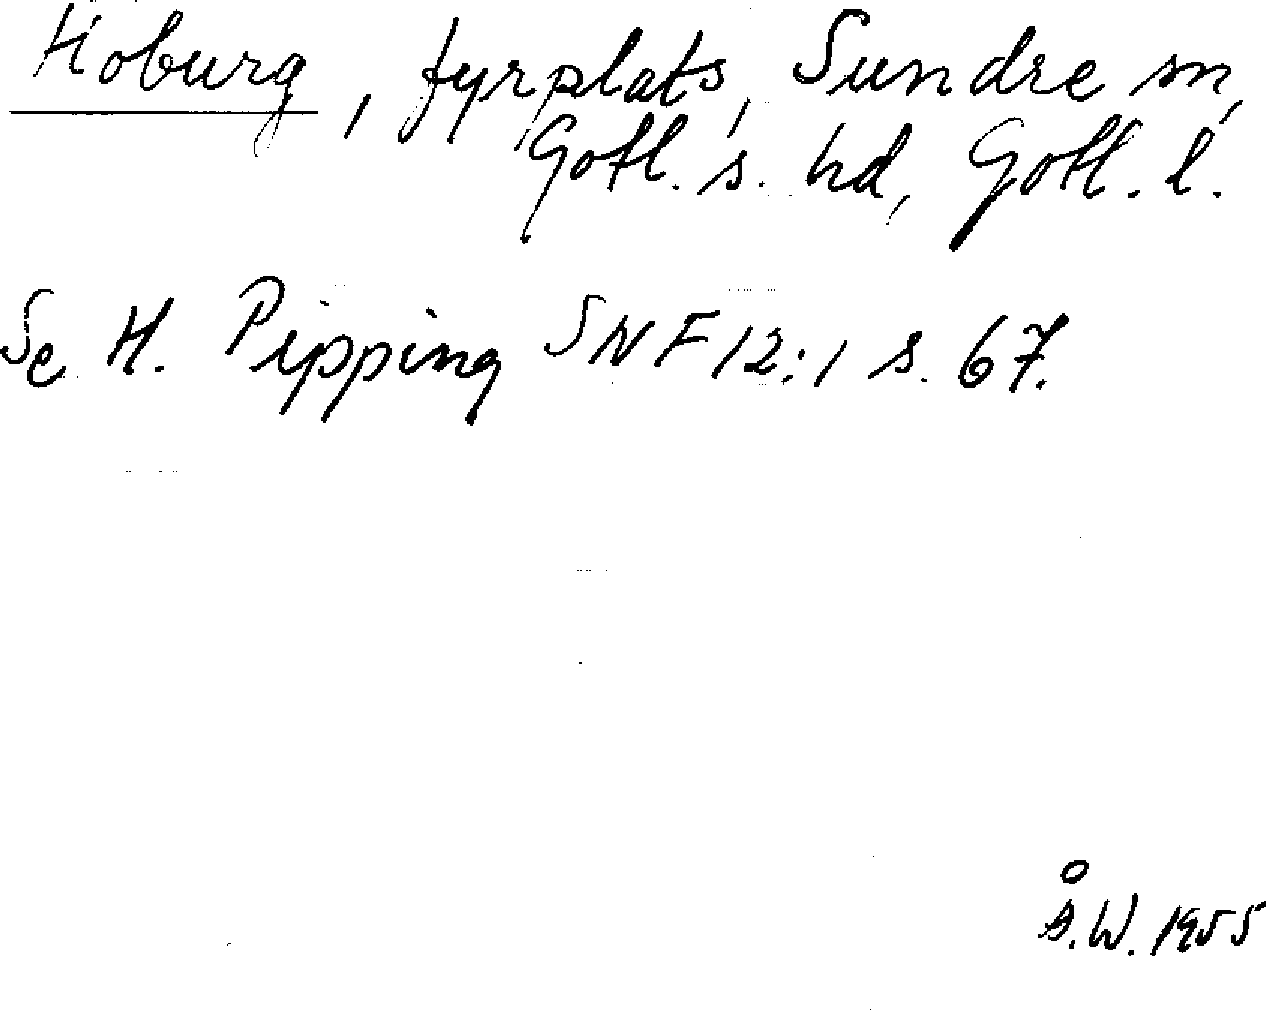 Hoburg, fyrplats, Sundre sn,
Gotl. s. hd, Gotl. l.
Se H. Pipping SNF 12:1 s. 67.
Å.W. 1955